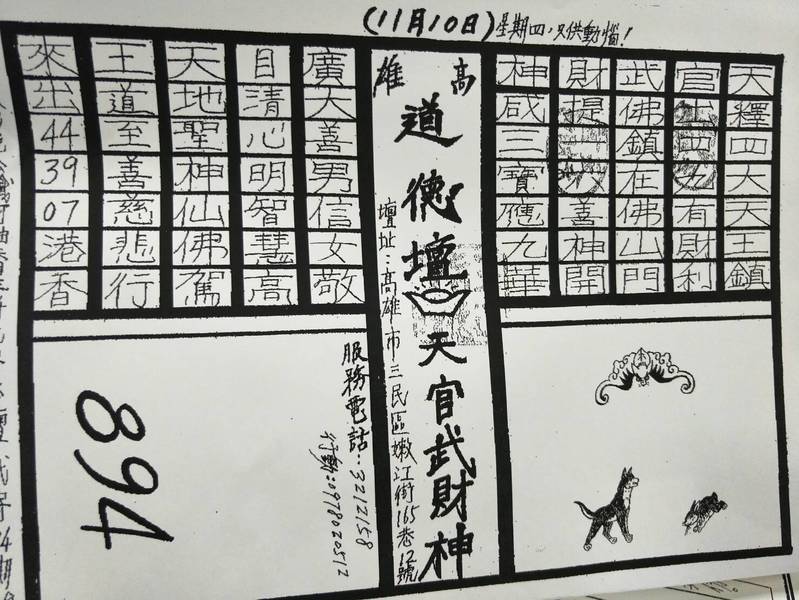 (11月10日)星期四,只供動惱!
天釋四大天王鎮
官出四 有財利
武佛鎮在佛山門
財提 善神開
神咸三寶應九華
高雄
道德壇
天官武財神
壇址:高雄市三民區嫩江街165巷12號
廣大善男信女敬
目清心明智慧高
天地聖神仙佛駕
王道至善慈悲行
來出443907港香
服務電話:3212158
行動:0978020512
894